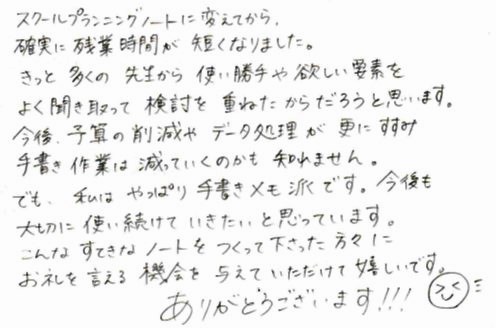 スクールプランニングノートに変えてから、
確実に残業時間が短くなりました。
きっと多くの先生から使い勝手や欲しい要素を
よく聞き取って検討を重ねたからだろうと思います。
今後、予算の削減やデータ処理が更にすすみ
手書き作業は減っていくのかも知れません。
でも、私はやっぱり手書きメモ派です。今後も
大切に使い続けていきたいと思っています。
こんなすてきなノートをつくって下さった方々に
お礼を言える機会を与えていただけて嬉しいです。
ありがとうございます!!!